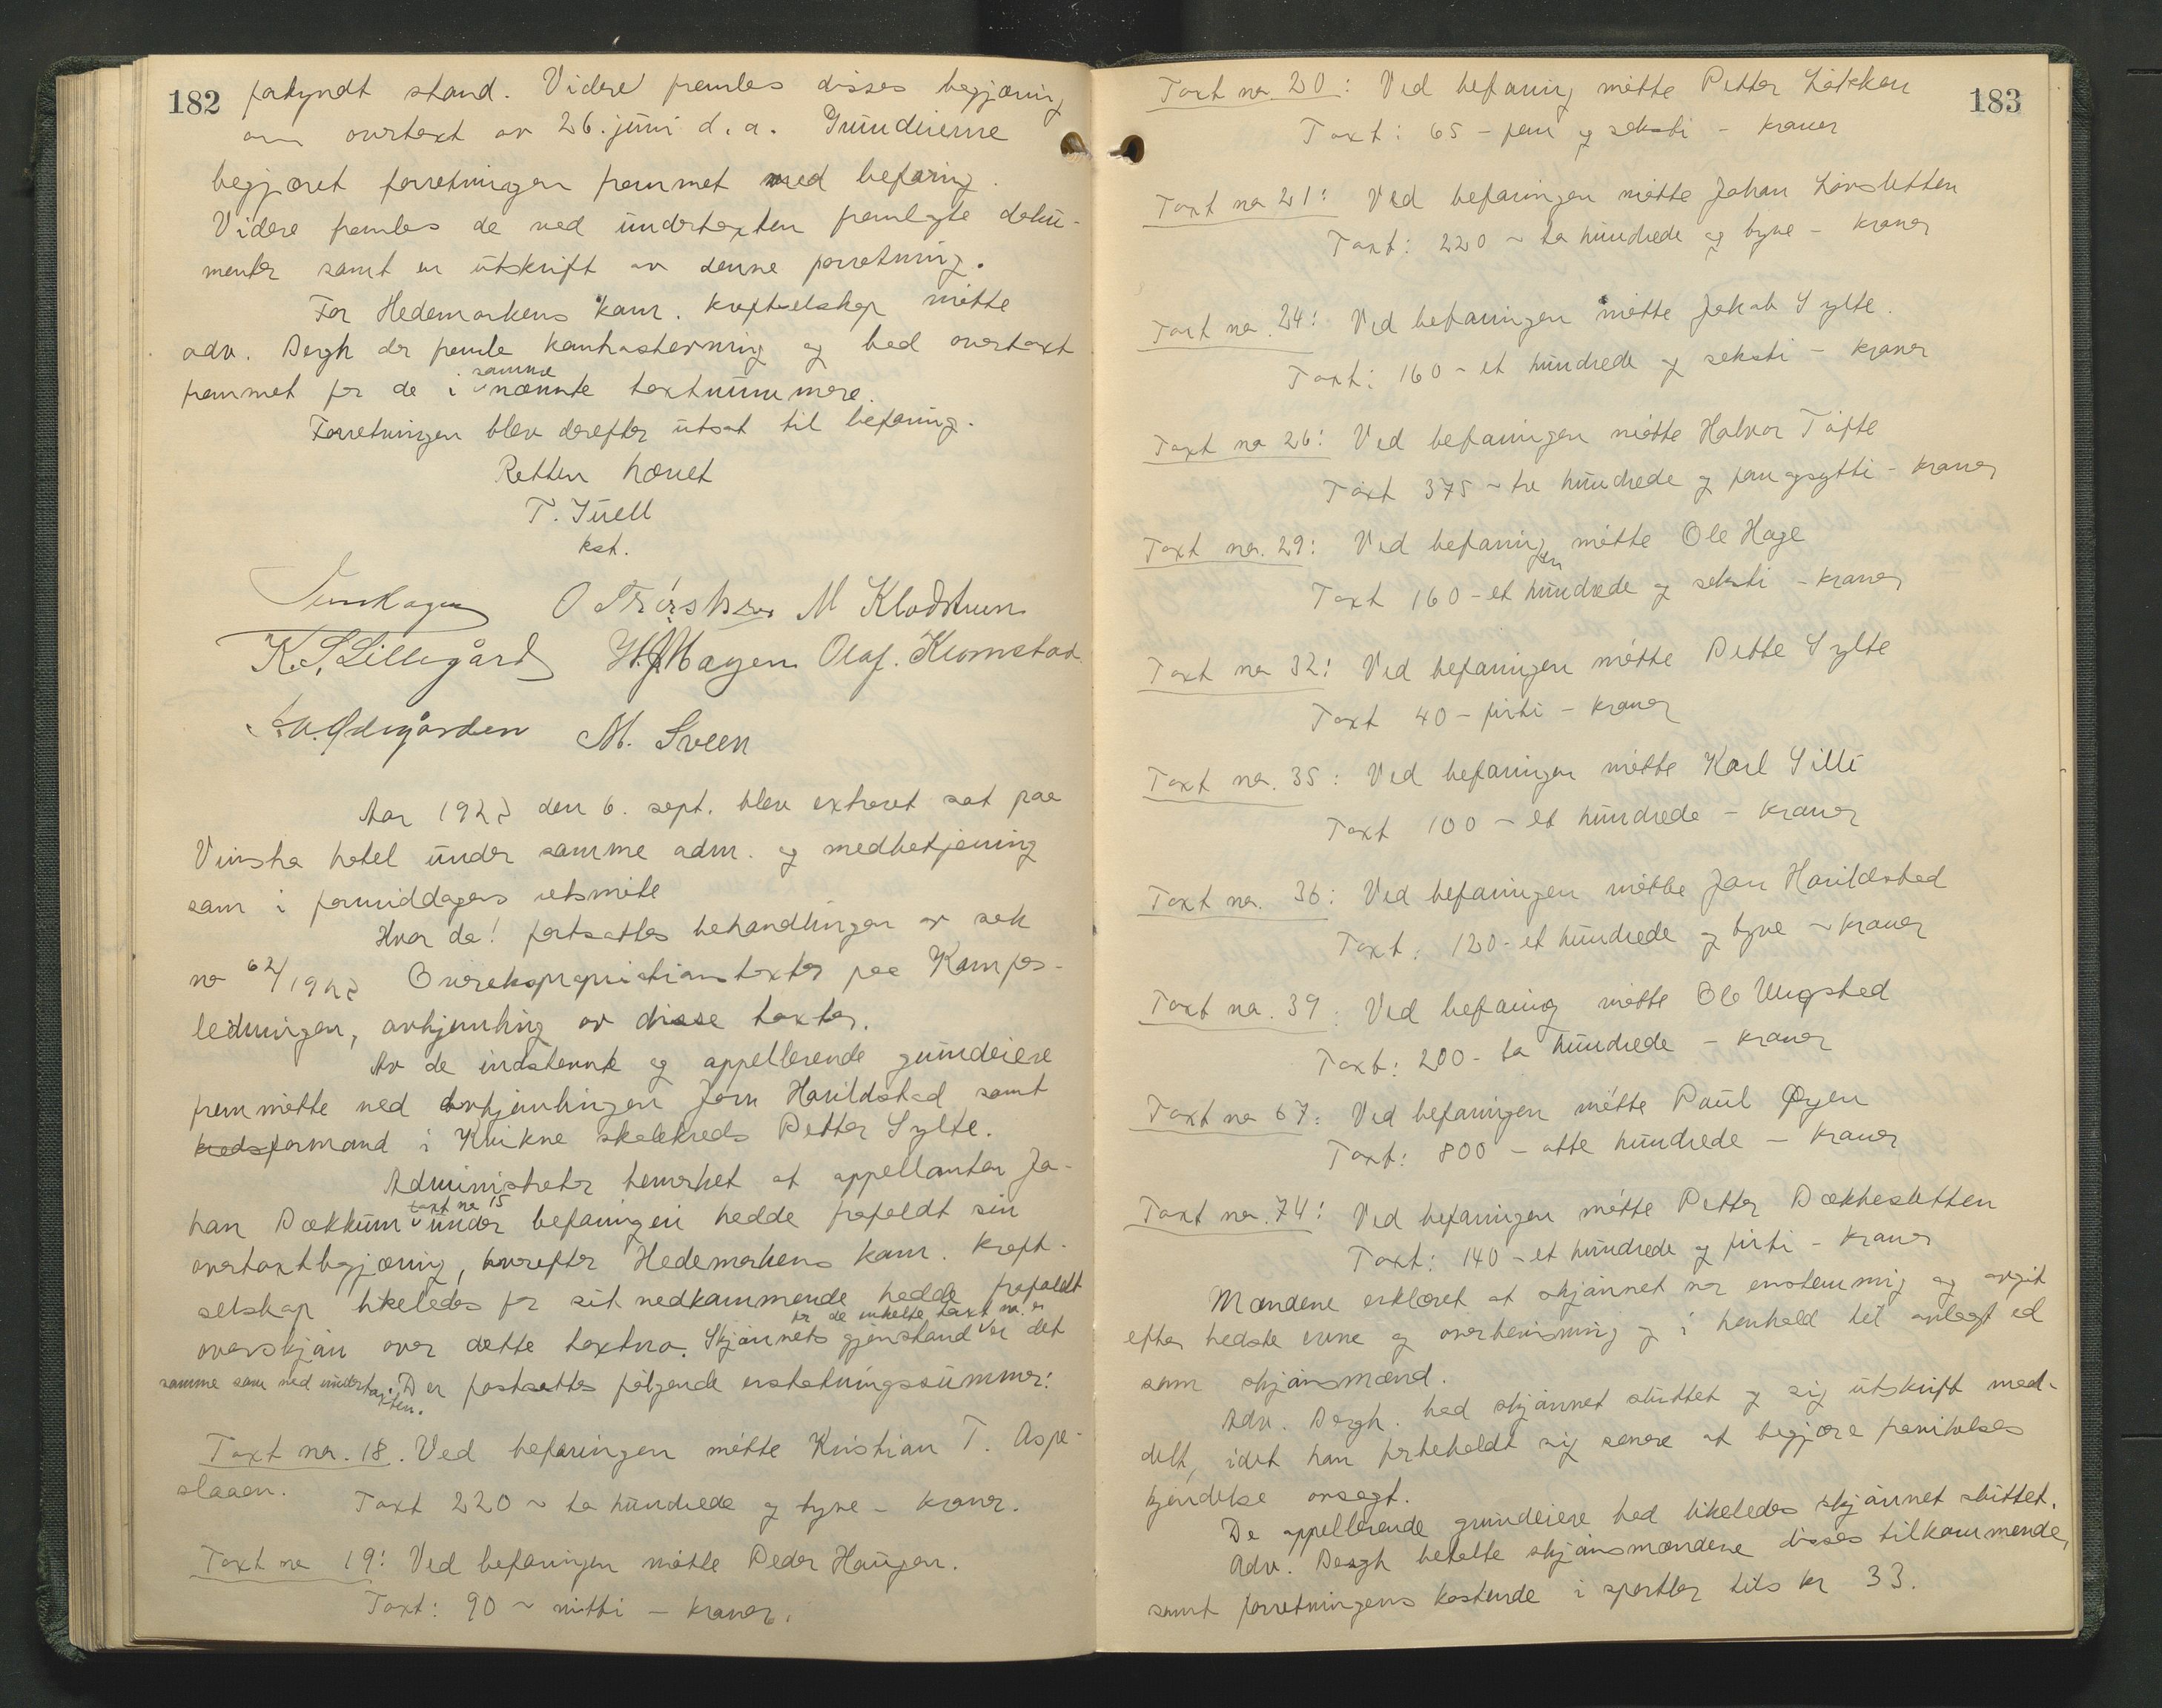 182
forkyndt stand. Videre fremlas disses begjæring
om overtaxt av 26. juni d.a. Grundeierne
begjæret forretningen fremmet med befaring.
Videre fremlas de ved undertaxten fremlagte doku-
menter samt en utskrift av denne forretning.
For Hedemarkens kom. kraftselskap møtte
adv. Bergh der fremla kontrastevning og bad overtaxt
fremmet for de i samme nævnte taxtnummere.
Forretningen blev derefter utsat til befaring.
Retten hævet
T. Juell
kst.
M Klodtrun
K. S. Lillegård H. J. Hagen Olaf. Kromstad
Ødegården M. Sveen
Aar 1922 den 6. sept. blev extraret sat paa
Vinstra hotel under samme adm. og medbetjening
som i formiddagens retsmøte
Hvor da! fortsattes behandlingen av sak
no 62/1922 Overekspropriationstaxter paa Kamfos-
ledningen, avhjemling av disse taxter.
Av de indstevnte og appellerende grundeiere
fremmøtte ved avhjemlingen Jørn Harildstad samt
kredsformand i Kvikne skolekreds Petter Sylte.
Administrator bemerket at appellanten Jo-
han Bækkum taxt no 15 under befaringen hadde frafaldt sin
overtaxtbegjæring, hvorefter Hedemarkens kom. kraft-
selskap likeledes for sit vedkommende hadde frafaldt
overskjøn over dette taxtno. Skjønnets gjenstand for de enkelte taxt no. er var det
samme som ved undertaxten. Der fastsattes følgende erstatningssummer:
Taxt no. 18. Ved befaringen møtte Kristian T. Aspe-
slaaen.
Taxt 220 ~ to hundrede og tyve - kroner.
Taxt no 19: Ved befaringen møtte Peder Haugen.
Taxt: 90 ~ nitti - kroner.
183
Taxt no. 20: Ved befaring møtte Petter Løkken
Taxt: 65 - fem og seksti - kroner
Taxt no 21: Ved befaringen møtte Johan Lørsletten
Taxt: 220 ~ to hundrede og tyve - kroner
Taxt no. 24: Ved befaringen møtte Jakob Sylte.
Taxt: 160 - et hundrede og seksti - kroner
Taxt no 26: Ved befaringen møtte Halvor Tofte
Taxt 375 ~ tre hundrede og fem og sytti - kroner
Taxt no. 29: Ved befaringen møtte Ole Hage
Taxt 160 - et hundrede og seksti - kroner
Taxt no 32: Ved befaringen møtte Petter Sylte
Taxt 40 - firti - kroner
Taxt no. 35: Ved befaringen møtte Karl Silli
Taxt 100 ~ et hundrede - kroner
Taxt no. 36: Ved befaringen møtte Jørn Harildstad
Taxt: 120 - et hundrede og tyve ~ kroner
Taxt no. 39: Ved befaring møtte Ole Ulugstad
Taxt: 200 - to hundrede - kroner
Taxt no 67: Ved befaringen møtte Paul Øyen
Taxt: 800 - otte hundrede - kroner
Taxt no. 74: Ved befaringen møtte Petter Bækkesletten
Taxt: 140 - et hundrede og firti - kroner
Mændene erklæret at skjønnet var enstemmig og avgit
efter bedste evne og overbevisning og i henhold til avlagt ed
som skjønsmænd.
Adv. Bergh. bad skjønnet sluttet og sig utskrift med-
delt, idet han forbeholdt sig senere at begjære fravikelses
kjendelse avsagt.
De appellerende grundeiere bad likeledes skjønnet sluttet.
Adv. Bergh betalte skjønsmændene disses tilkommende,
samt forretningens kostende i sportler tils kr 33.